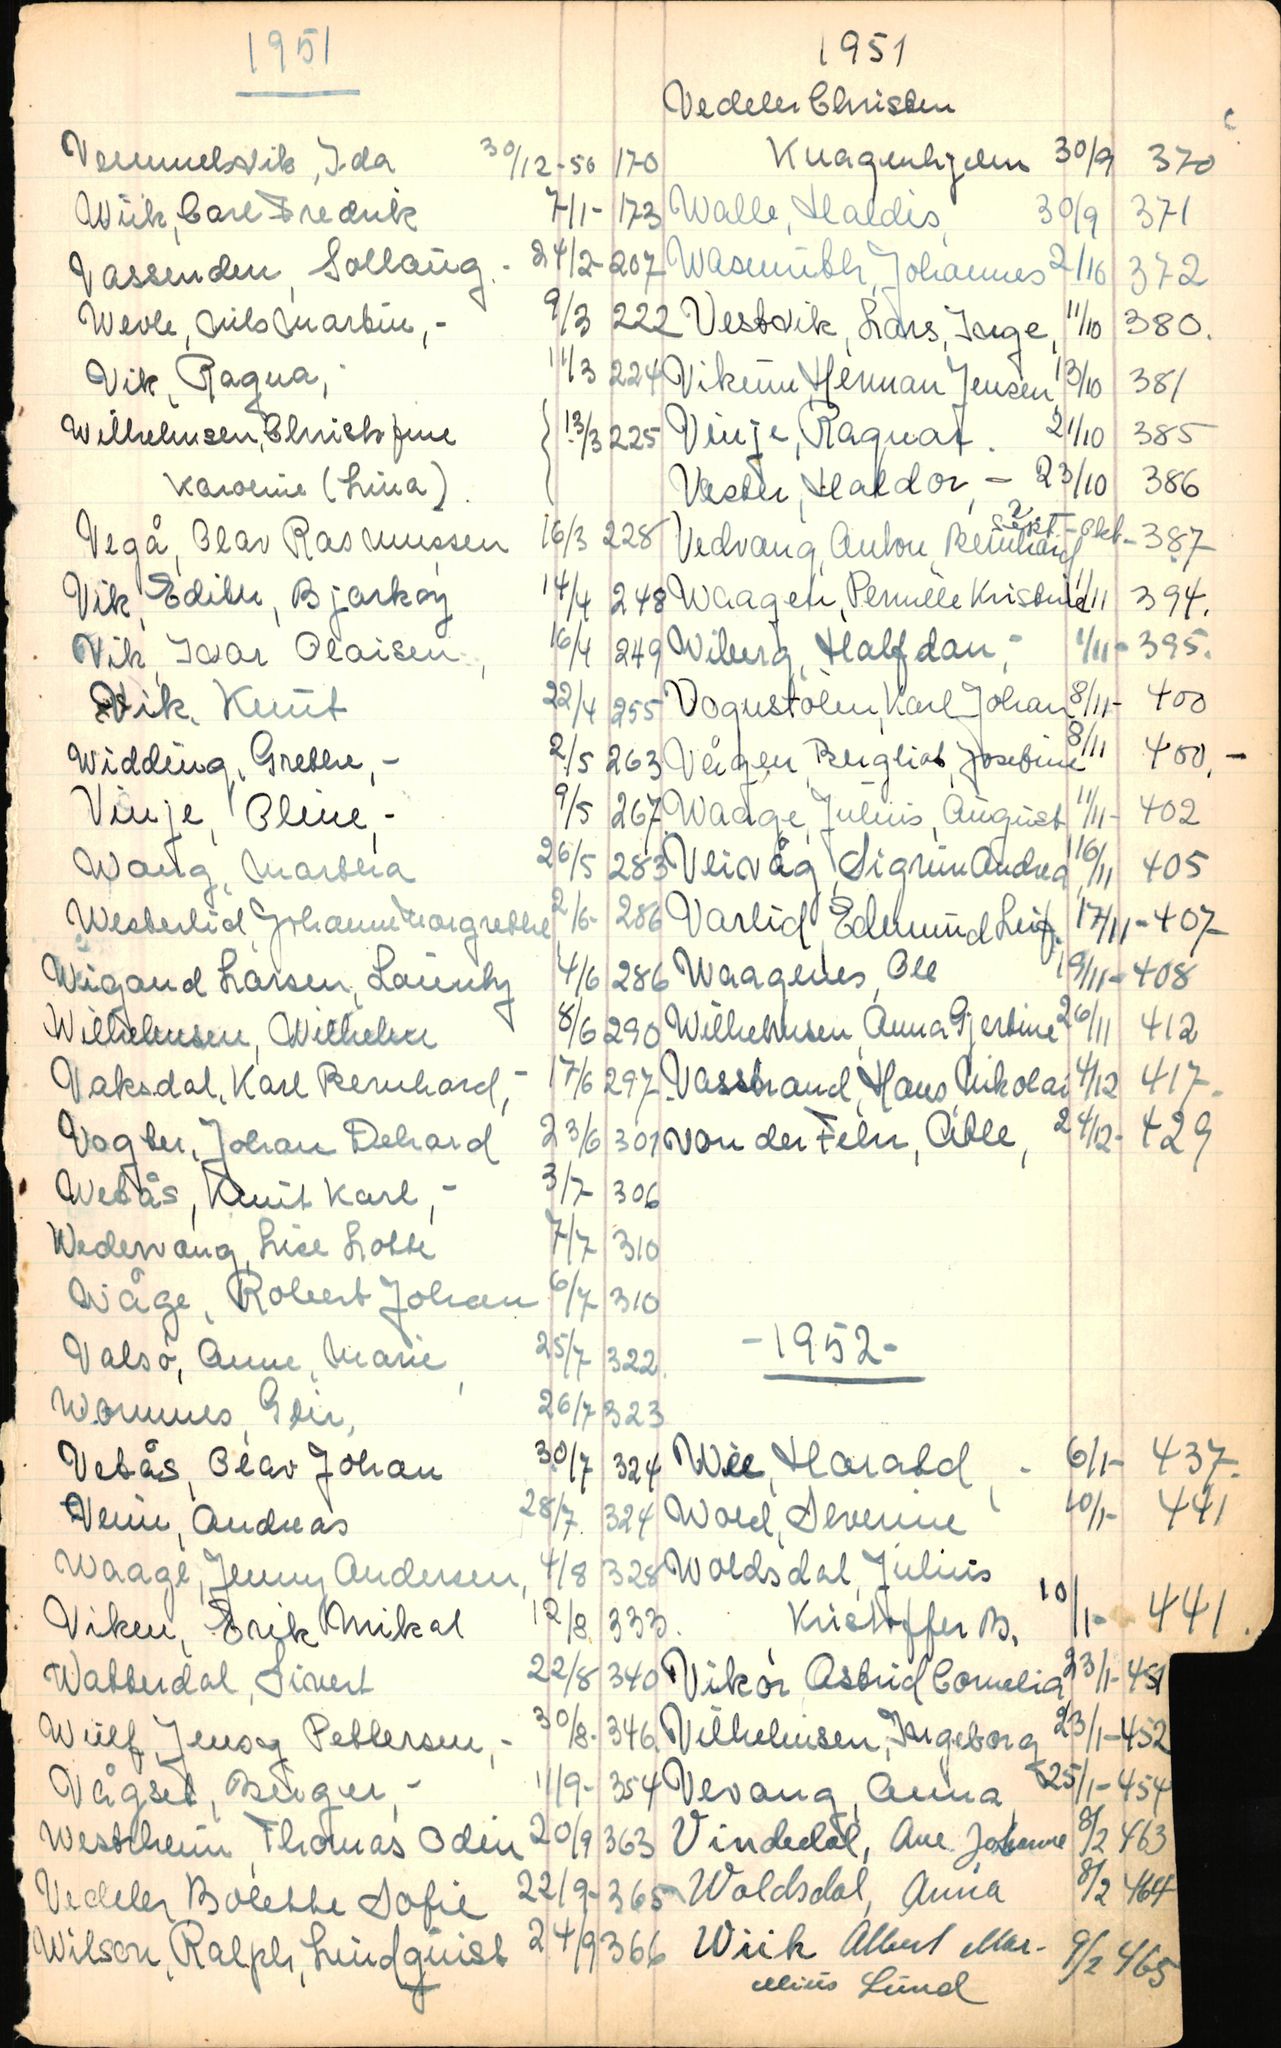 1951
Vemmelsvik, Ida 30/12-50 170
Wiik, Carl Fredrik 7/1- 173
Vassenden, Sollaug. - 24/2- 207
Wevle, Nils Martin, - 9/3 222
Vik, Ragna, - 11/3 224
Wilhelmsen, Christofine 13/3 225
Karoline (Lina).
Vegå, Olav Rasmussen 16/3 228
Vik, Edith, Bjarkøy 14/4 248
Vik, Ivar Olaisen, 16/4 249
Vik, Knut 22/4 255
Widding, Grethe, - 2/5 263
Vinje, Oline, - 9/5 267
Wang, Martha 26/5 283
Westerlid, Johanne Margrethe 2/6- 286
Wigand Larsen, Lauritz 4/6 286
Wilhelmsen, Wilhelm 8/6 290
Vaksdal, Karl Bernhard, - 17/6 297
Vogter, Johan Dehard 23/6 301
Webås, Knut Karl, - 3/7- 306
Wedervang, Lise Lotte 7/7 310
Wåge, Robert Johan 6/7 310
Valsö, Anne, Marie, 25/7 322
Wommes, Geir, 26/7 323
Vebås, Olav Johan 30/7 324
Veim, Andreas 28/7 324
Waage, Jenny Andersen, 4/8 328
Viken, Erik Mikal 12/8 333.
Watterdal, Sivert 22/8 340
Wulf, Jensøg Pettersen, - 30/8- 346
Vågset, Birger, - 11/9- 354
Westrheim, Thomas Odin 20/9 363
Vedeler Bolette Sofie 22/9- 365
Wilson, Ralph, Lindquist 24/9 366
1951
Vedeler Christen
Knagenhjelm 30/9 370
Walle, Haldis, 30/9 371
Wasmuth, Johannes 2/10 372
Vestvik, Lars, Inge, 11/10 380.
Vikum Herman Jensen 13/10 381
Vinje, Ragnar. 21/10 385
Vester, Haldor, - 23/10 386
Vedvang, Anton, Bernhard sept-okt- 387
Waagen, Pernille Kristine 1/11 394.
Wiberg, Halfdan, - 1/11- 395.
Vogustølen, Karl Johan 8/11- 400
Vågen, Bergliot, Josefine 8/11 400. -
Waage, Julius, August 11/11- 402
Veivåg, Sigrun Andrea 16/11 405
Varlid, Edmund Leif. 17/11- 407
Waagenes, Ole 19/11- 408
Wilhelmsen, Anna Gjertine 26/11 412
Vasstrand, Hans, Nikolai 4/12 417.
von der Fehr, Able, 24/12- 429
-1952-
Wiie, Harald, - 6/1- 437.
Wold, Severine 10/1- 441
Woldsdal, Julius
Kristoffer B. 10/1- 441.
Vikör, Astrid Cornelia 23/1- 451
Vilhelmsen, Ingeborg 23/1- 452
Vevang, Anna, 25/1- 454
Vindedal, Ane Johanne 8/2 463
Woldsdal, Anna 8/2 464
Wiik Albert Mar- 9/2 465
elius Lund